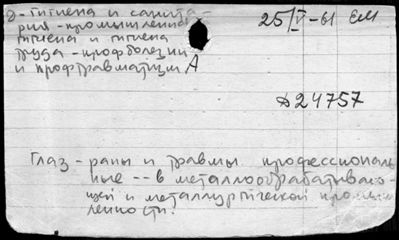 д-гигиена и санита-
рия-промышленная
гигиена и гигиена
труда-профболезни
и профтравматизм А
25/V-61 ЕМ
Д24757
Глаз - раны и травмы профессиональ-
ные -- в металлообрабатываю-
щей и металлургической промыш-
ленности.